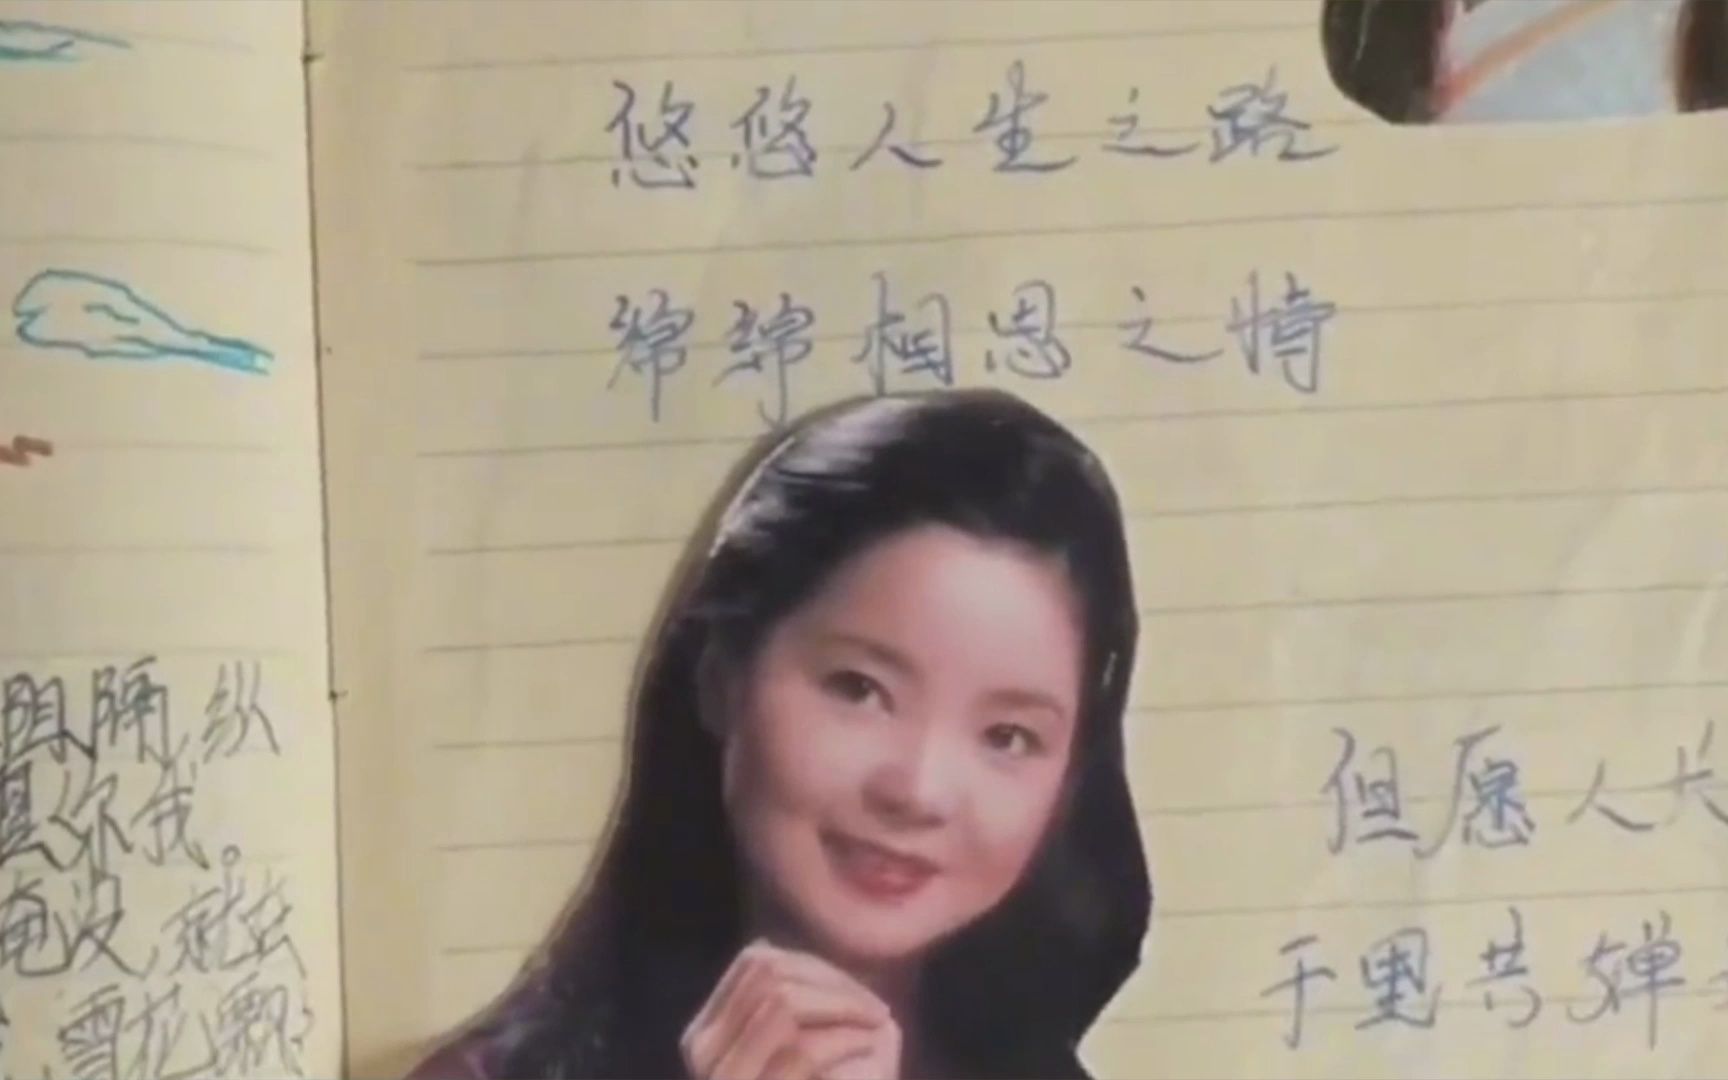 悠悠人生之路
绵绵相思之情
但愿人长
千里共婵
阻隔,纵
你我。
淹没,就
雪花飘